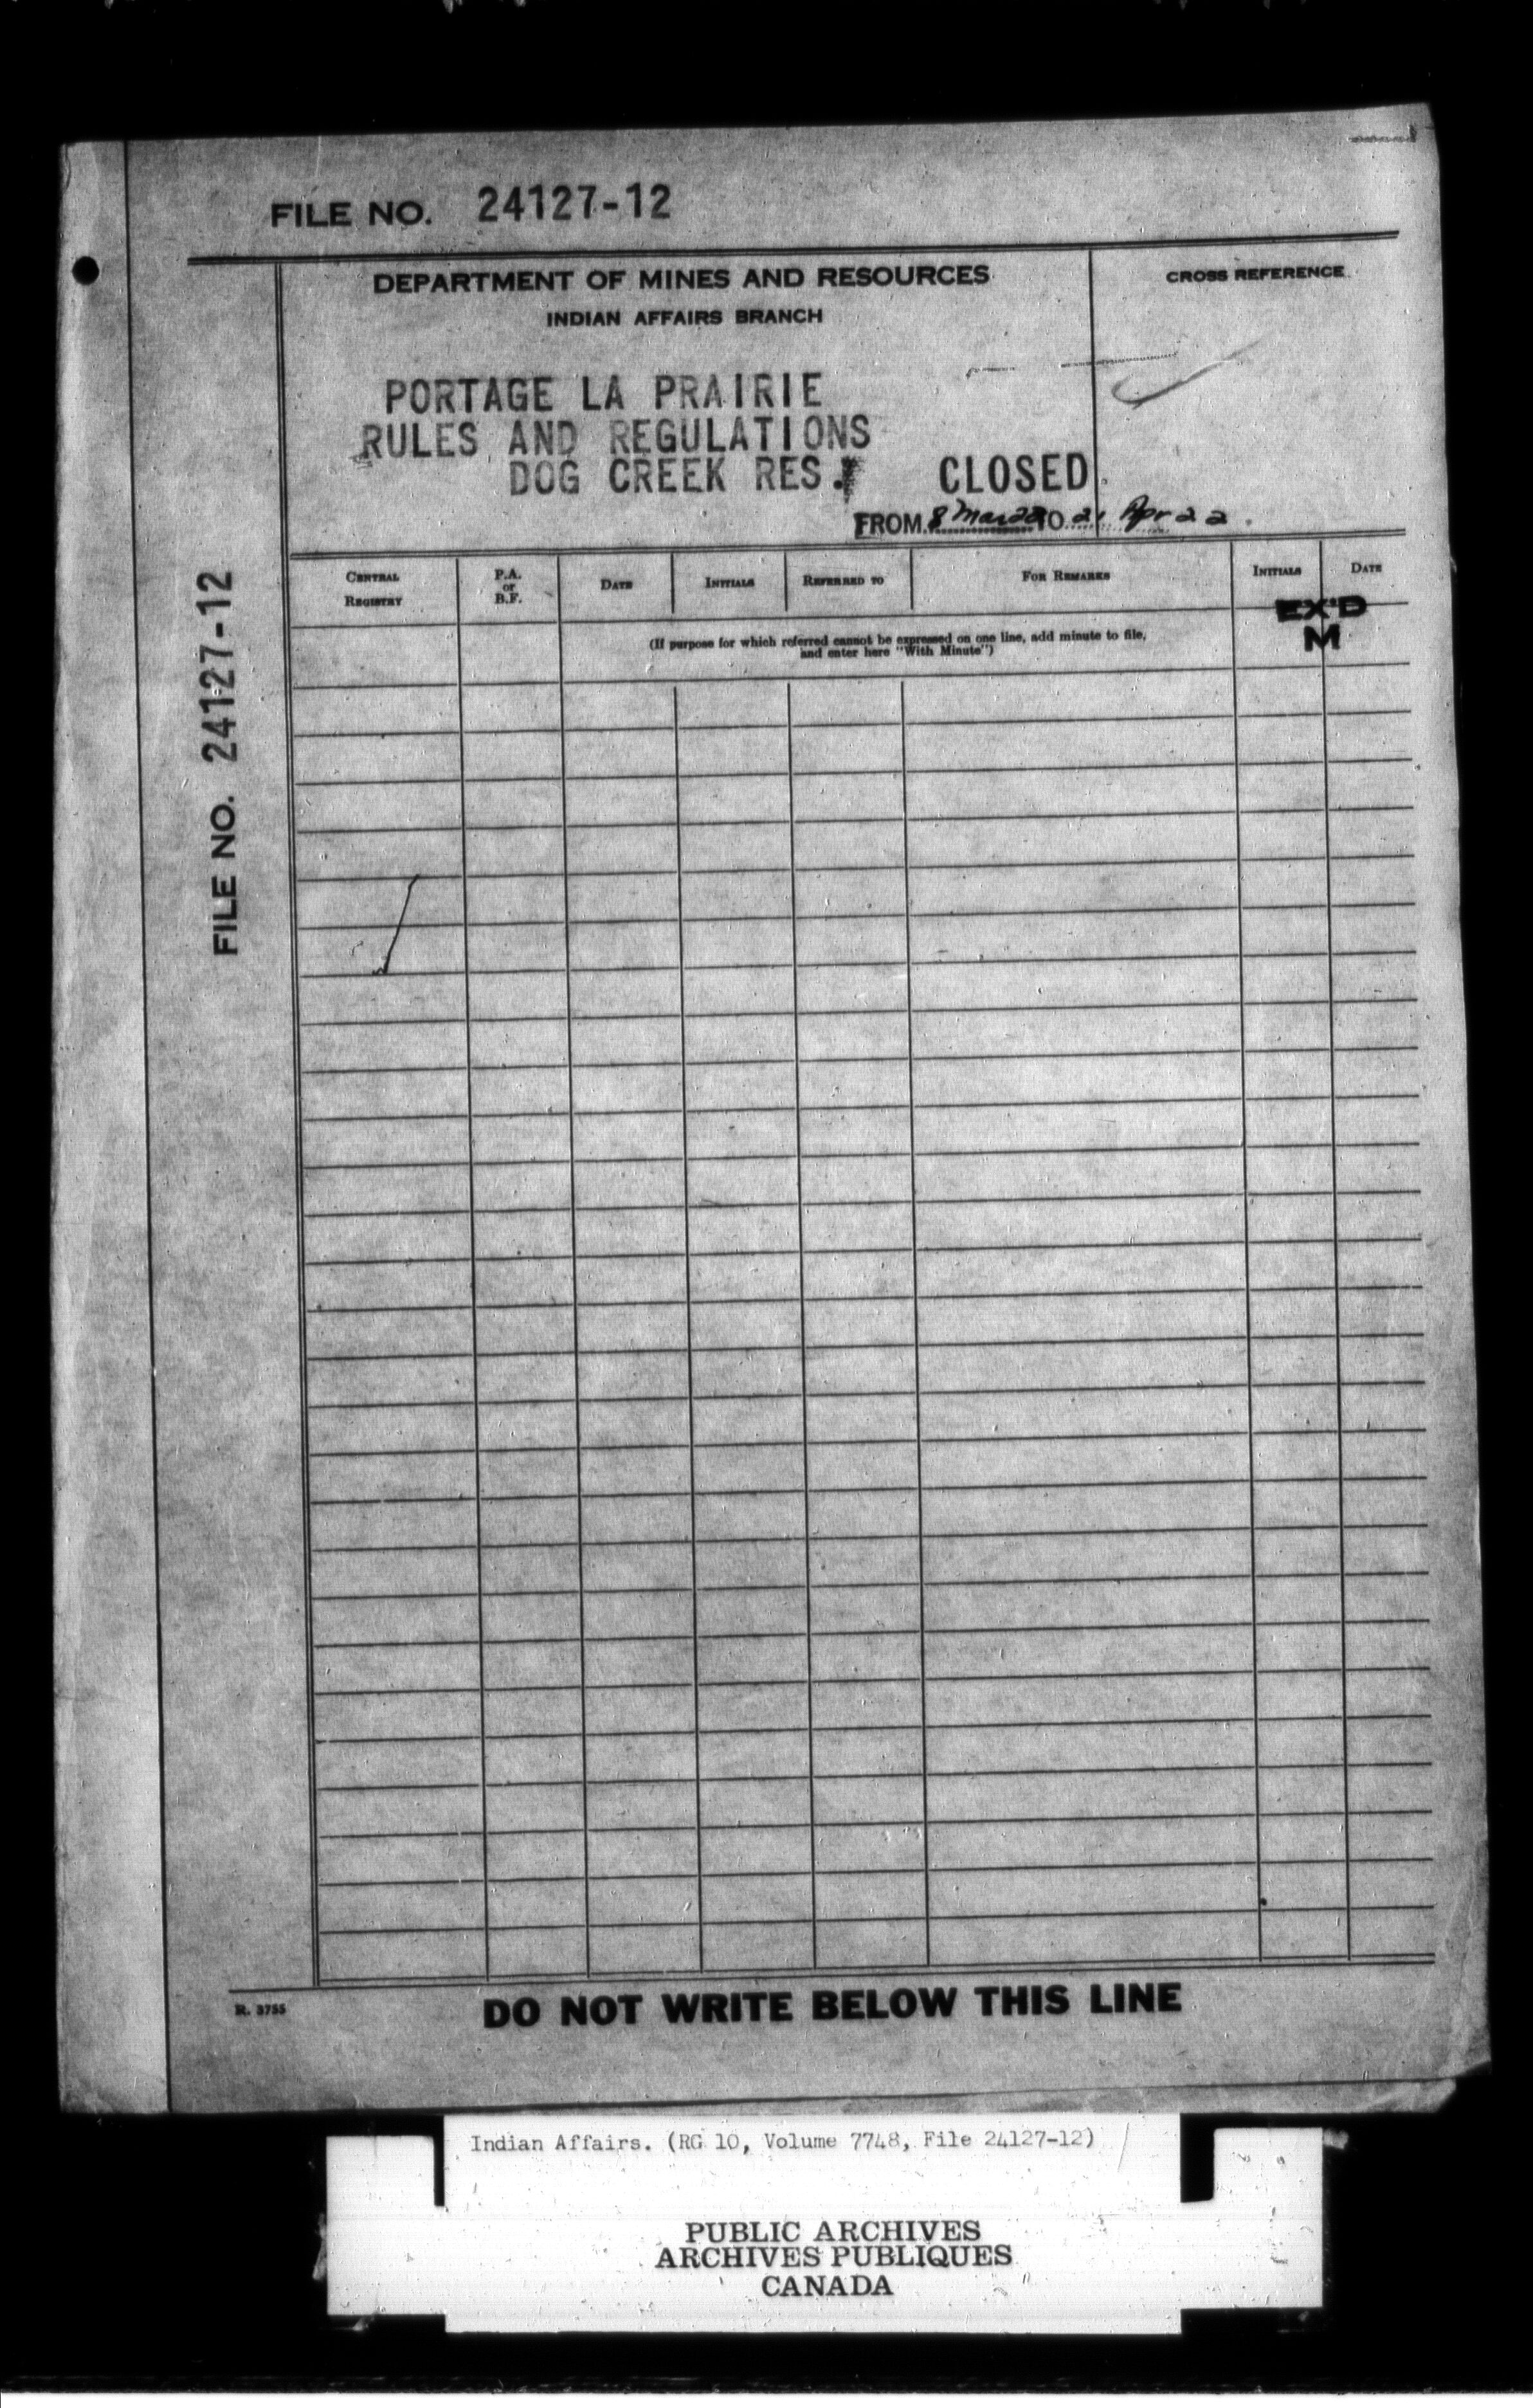 FILE NO. 24127-12
DEPARTMENT OF MINES AND RESOURCES
INDIAN AFFAIRS BRANCH
CROSS REFERENCE
PORTAGE LA PRAIRIE
RULES AND REGULATIONS
DOG CREEK RES.
CLOSED
FROM 8 Mar 22 TO 21 Apr 22
CENTRAL REGISTRY
P.A. or B.F.
DATE
INITIALS
REFERRED TO
FOR REMARKS
INITIALS
DATE
EX'D
M
(If purpose for which referred cannot be expressed on one line, add minute to file,
and enter here "With Minute")
FILE NO. 24127-12
R. 3755
DO NOT WRITE BELOW THIS LINE
Indian Affairs. (RG 10, Volume 7748, File 24127-12)
PUBLIC ARCHIVES
ARCHIVES PUBLIQUES
CANADA